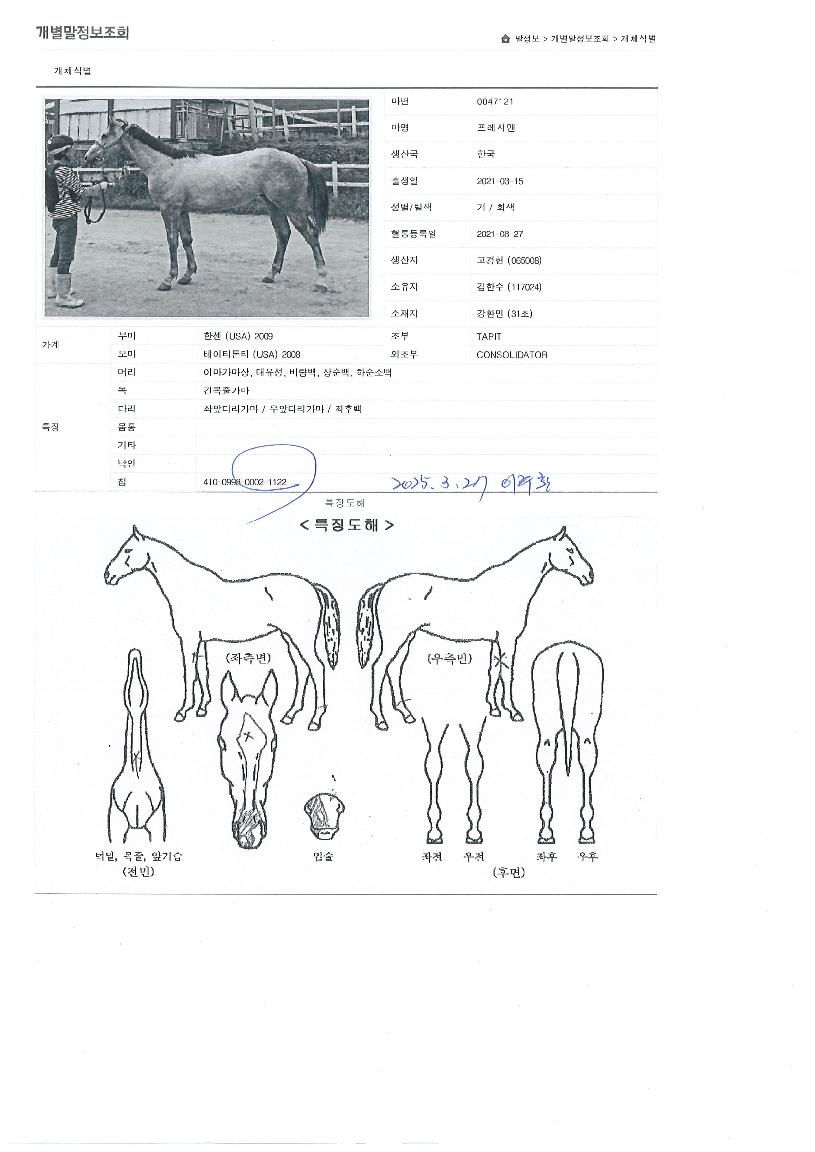 개별말정보조회
말정보 > 개별말정보조회 > 개체식별
개체식별
마번 0047121
마명 프레시맨
생산국 한국
출생일 2021-03-15
성별/털색 거 / 회색
혈통등록일 2021-08-27
생산자 고경헌 (065008)
소유자 김한수 (117024)
소재지 강환민 (31조)
가계 부마 한센 (USA) 2009 조부 TAPIT
모마 테이티몬티 (USA) 2008 외조부 CONSOLIDATOR
특징 머리 이마가마상, 대유성, 비량백, 상순백, 하순소백
목 긴목줄가마
다리 좌앞다리가마 / 우앞다리가마 / 좌후백
몸통
기타
낙인
칩 410-0998-0002-1122
2025. 3. 27
특징도해
< 특징도해 >
(좌측면) (우측면)
턱밑, 목줄, 앞가슴
(전면)
입술
좌전 우전 좌후 우후
(후면)